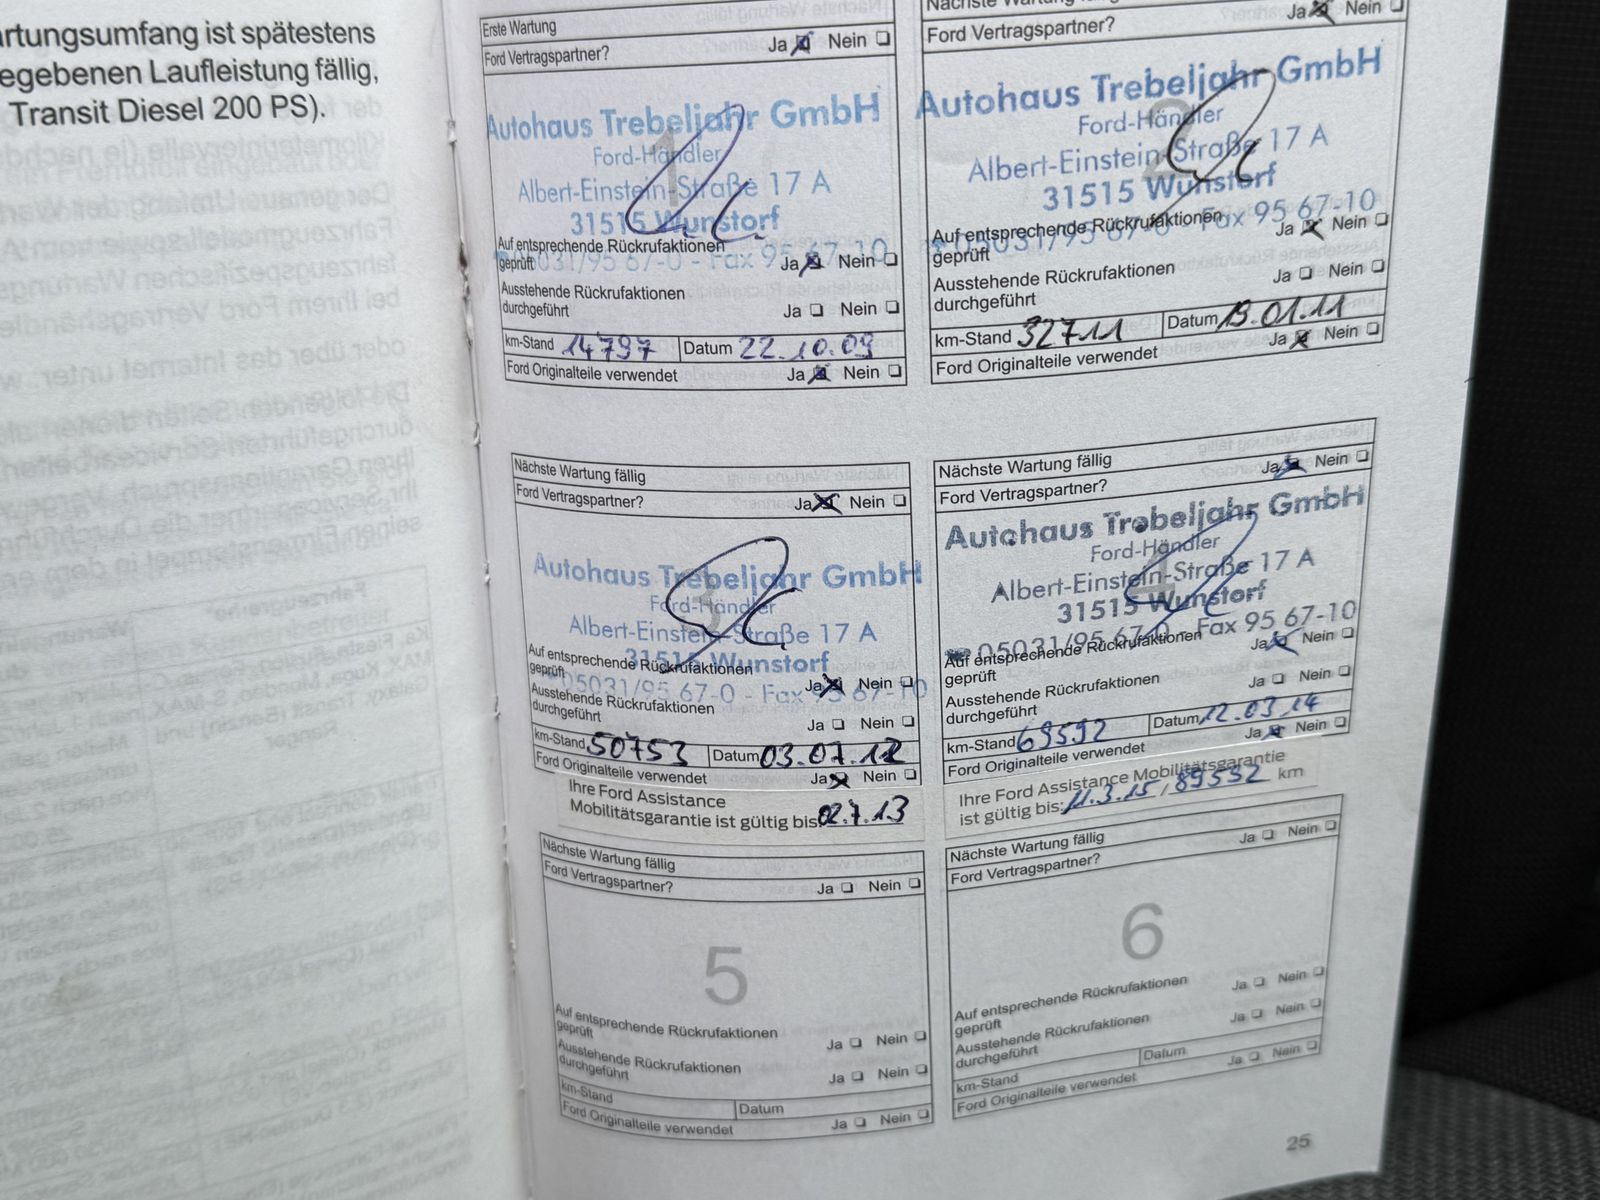 artungsumfang ist spätestens
egebenen Laufleistung fällig,
Transit Diesel 200 PS).
Erste Wartung
Ford Vertragspartner? Ja Nein
Autohaus Trebeljahr GmbH
1
Ford-Händler
Albert-Einstein-Straße 17 A
31515 Wunstorf
05031/95 67-0 - Fax 95 67-10
Auf entsprechende Rückrufaktionen
geprüft Ja Nein
Ausstehende Rückrufaktionen
durchgeführt Ja Nein
km-Stand 14797 Datum 22.10.09
Ford Originalteile verwendet Ja Nein
Nächste Wartung fällig
Ford Vertragspartner? Ja Nein
Autohaus Trebeljahr GmbH
2
Ford-Händler
Albert-Einstein-Straße 17 A
31515 Wunstorf
05031/95 67-0 - Fax 95 67-10
Auf entsprechende Rückrufaktionen
geprüft Ja Nein
Ausstehende Rückrufaktionen
durchgeführt Ja Nein
km-Stand 32711 Datum 19.01.11
Ford Originalteile verwendet Ja Nein
Nächste Wartung fällig
Ford Vertragspartner? Ja Nein
Autohaus Trebeljahr GmbH
3
Ford-Händler
Albert-Einstein-Straße 17 A
31515 Wunstorf
05031/95 67-0 - Fax 95 67-10
Auf entsprechende Rückrufaktionen
geprüft Ja Nein
Ausstehende Rückrufaktionen
durchgeführt Ja Nein
km-Stand 50753 Datum 03.07.12
Ford Originalteile verwendet Ja Nein
Ihre Ford Assistance
Mobilitätsgarantie ist gültig bis: 02.7.13
Nächste Wartung fällig
Ford Vertragspartner? Ja Nein
Autohaus Trebeljahr GmbH
4
Ford-Händler
Albert-Einstein-Straße 17 A
31515 Wunstorf
05031/95 67-0 - Fax 95 67-10
Auf entsprechende Rückrufaktionen
geprüft Ja Nein
Ausstehende Rückrufaktionen
durchgeführt Ja Nein
km-Stand 69592 Datum 12.03.14
Ford Originalteile verwendet Ja Nein
Ihre Ford Assistance Mobilitätsgarantie
ist gültig bis: 11.3.15 / 89592 km
Nächste Wartung fällig
Ford Vertragspartner? Ja Nein
5
Auf entsprechende Rückrufaktionen
geprüft Ja Nein
Ausstehende Rückrufaktionen
durchgeführt Ja Nein
km-Stand Datum
Ford Originalteile verwendet Ja Nein
Nächste Wartung fällig
Ford Vertragspartner? Ja Nein
6
Auf entsprechende Rückrufaktionen
geprüft Ja Nein
Ausstehende Rückrufaktionen
durchgeführt Ja Nein
km-Stand Datum
Ford Originalteile verwendet Ja Nein
25